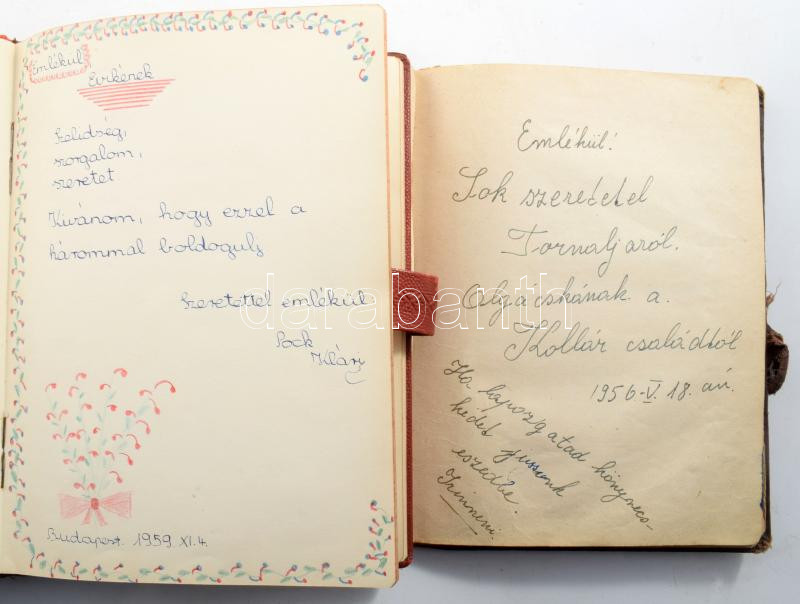 Emlékül
Evikének
Szelidség,
szorgalom,
szeretet
Kivánom, hogy ezzel a
hárommal boldogulj
Szeretettel emlékül
Sock
Klári
Budapest. 1959. XI. 4.
Emlékül!
Sok szeretetel
Tornaljaról.
Olgácskának a
Kollár családtól
1956-V. 18. án.
Ha lapozgatad könyvecs-
kédet jussunk
eszedbe.
darabanth